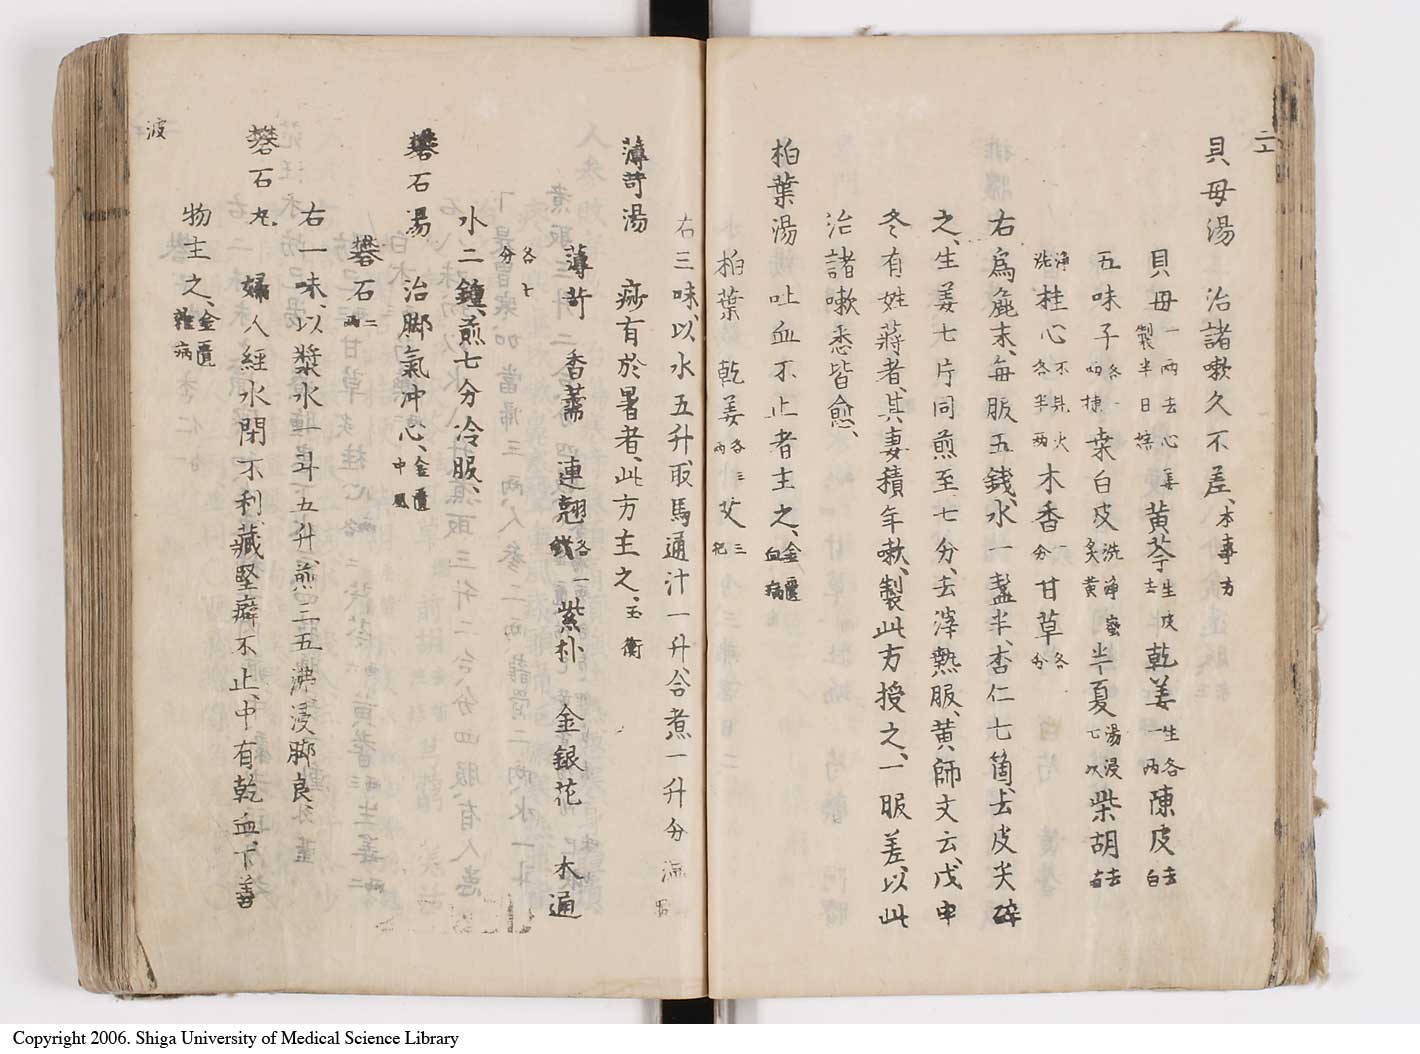 貝母湯 治諸嗽久不差、本事方
貝母一両去心姜製半日焙 黄芩生皮去 乾姜生各一両 陳皮去白
五味子各両 桑白皮洗浄蜜炙黄 半夏湯浸七次 柴胡去苗
洗浄 桂心不見火各半両 木香一分 甘草各分
右為麁末、毎服五銭、水一盞半、杏仁七箇、去皮尖碎
之、生姜七片同煎至七分、去滓熱服、黄師文云、戊申
冬有姓蒋者、其妻積年嗽、製此方授之、一服差、以此
治諸嗽悉皆愈、
柏葉湯 吐血不止者主之、金匱血病
柏葉 乾姜各三両 艾三把
右三味、以水五升、取馬通汁一升、合煮一升分温
薄荷湯 痧有於暑者、此方主之、玉衡
薄荷 香薷 連翹各一銭 紫朴 金銀花 木通
各七分
水二鍾、煎七分、冷服、
礬石湯 治脚氣冲心、金匱中風
礬石二両
右一味、以漿水一斗五升、煎三五沸浸脚良
礬石丸 婦人経水閉不利、藏堅癖不止、中有乾血、下善
物主之、金匱雑病
波
Copyright 2006. Shiga University of Medical Science Library